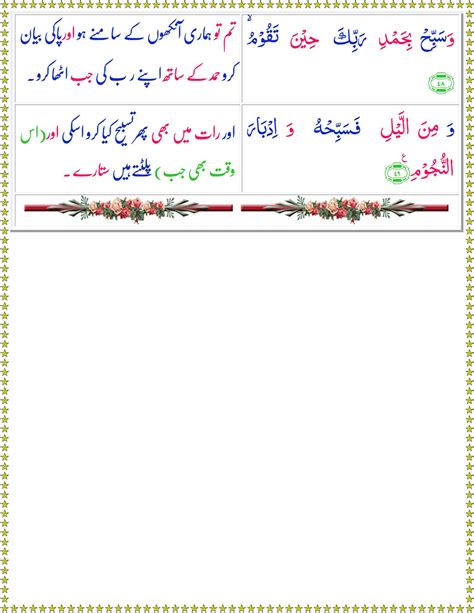 وَسَبِّحْ بِحَمْدِ رَبِّكَ حِيْنَ تَقُوْمُۙ
﴿٤٨﴾
تم تو ہماری آنکھوں کے سامنے ہو اور پاکی بیان
کرو حمد کے ساتھ اپنے رب کی جب اٹھا کرو ۔
وَ مِنَ الَّيْلِ فَسَبِّحْهُ وَ اِدْبَارَ
النُّجُوْمِ ﴿٤٩﴾ ع
اور رات میں بھی پھر تسبیح کیا کرو اسکی اور (اس
وقت بھی جب) پلٹتے ہیں ستارے ۔